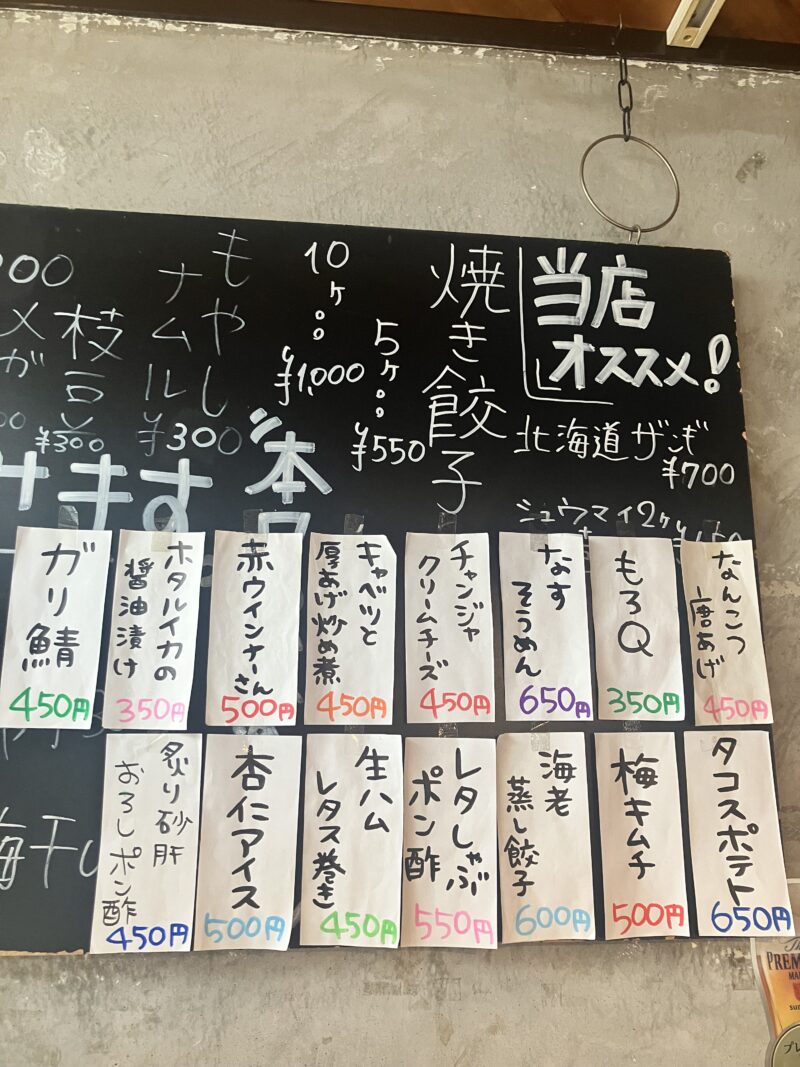 当店
オススメ!
北海道ザンギ
¥700
シュウマイ2ヶ
焼き餃子
5ヶ。。
¥550
10ヶ。。
¥1,000
もやし
ナムル
¥300
枝豆
¥300
本
けます
なんこつ
唐あげ
450円
もろQ
350円
なす
そうめん
650円
チャンジャ
クリームチーズ
450円
キャベツと
厚あげ炒め煮
450円
赤ウインナーさん
500円
ホタルイカの
醤油漬け
350円
ガリ鯖
450円
タコスポテト
650円
梅キムチ
500円
海老
蒸し餃子
600円
レタしゃぶ
ポン酢
550円
生ハム
レタス巻き
450円
杏仁アイス
500円
炙り砂肝
おろしポン酢
450円
梅干し